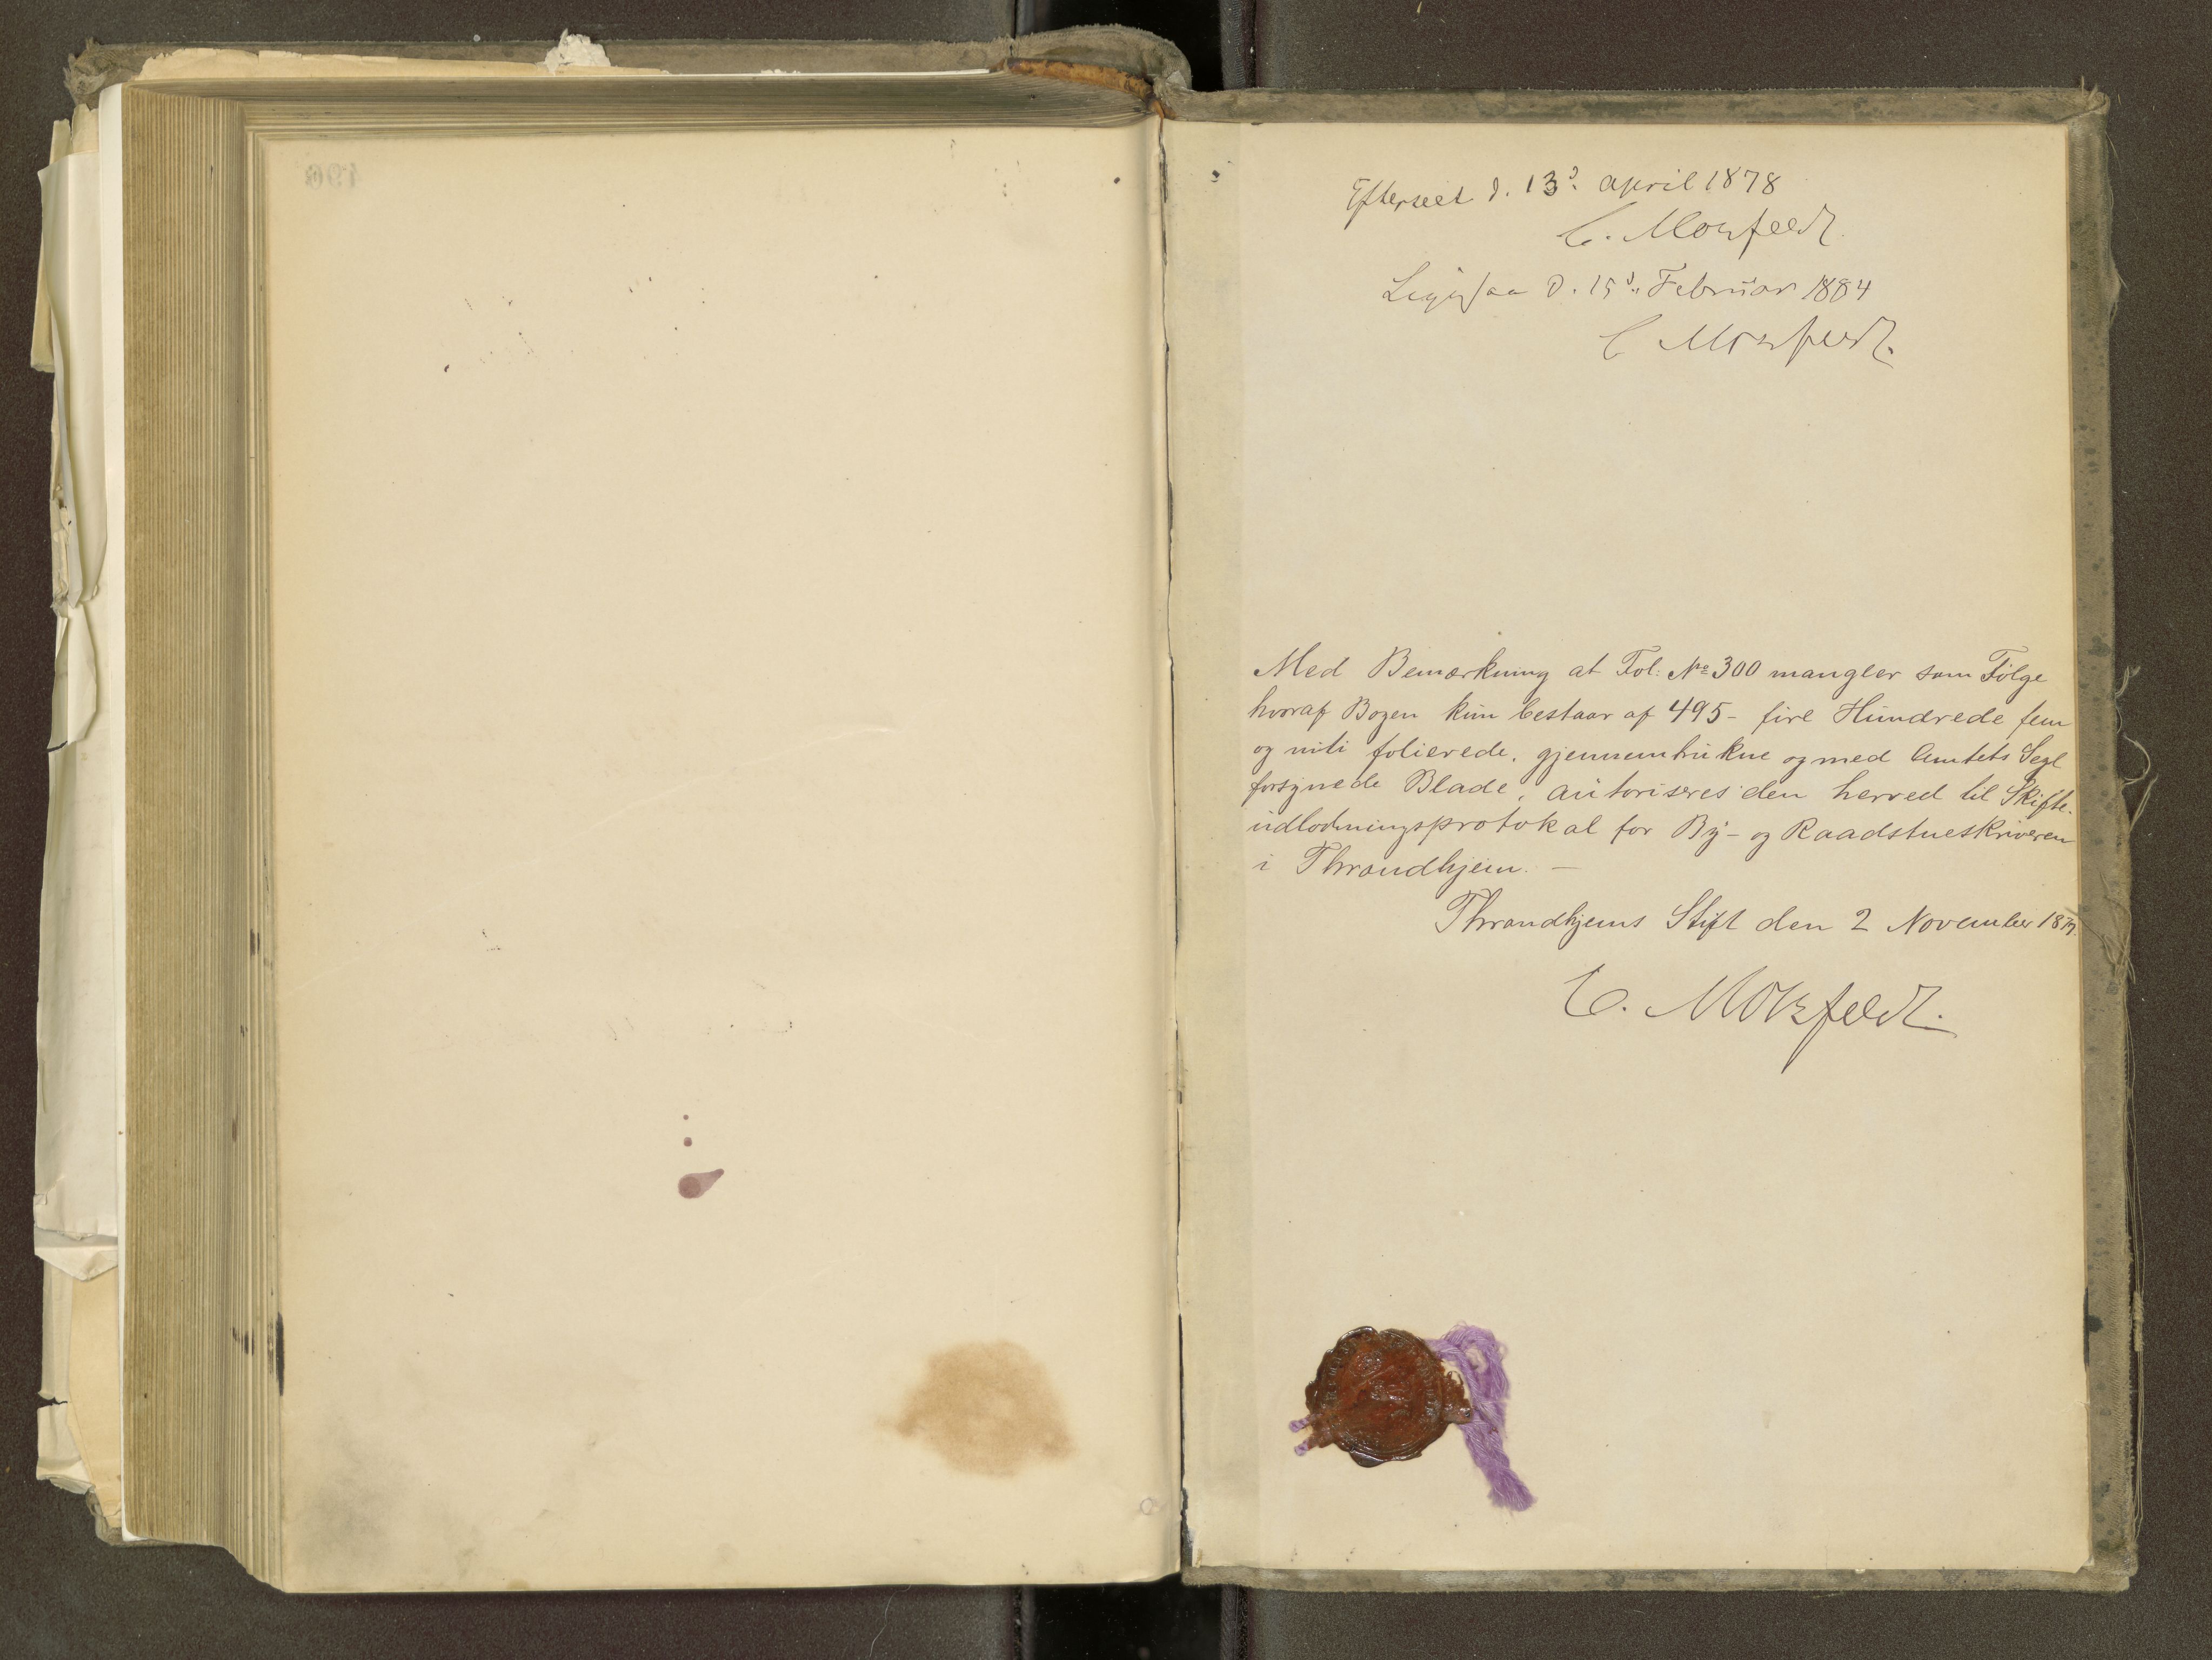 Efterseet d. 13d. april 1878
C. Motzfeldt.
Ligesaa d. 15d. Februar 1884
C Motzfeldt.
Med Bemærkning at Fol: No 300 mangler som Følge
hvoraf Bogen kun bestaar af 495 - fire Hundrede fem
og niti folierede, gjennemtrukne og med Amtets Segl
forsynede Blade, autoriseres den herved til Skifte-
udlodningsprotokol for By- og Raadstueskriveren
i Throndhjem. -
Throndhjems Stift den 2 November
C. Motzfeldt.
496